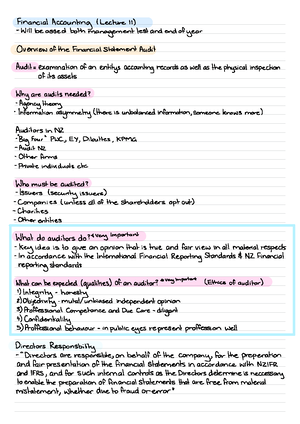 Financial Accounting (Lecture 11)
- Will be assed both management test and end of year
Overview of the Financial Statement Audit
Audit = examination of an entitys accounting records as well as the physical inspection
of its assets
Why are audits needed?
- Agency theory
- Information asymmetry (there is unbalanced information, someone knows more)
Auditors in NZ
- "Big Four" PWC, EY, Dilouttes, KPMG
- Audit NZ
- Other firms
- Private individuals etc
Who must be audited?
- Issuers (security issuers)
- Companies (unless all of the shareholders opt out)
- Charities
- Other entities
What do auditors do? * Very important
- Key idea is to give an opinion that is true and fair view in all material respects
- In accordance with the International Financial Reporting Standards & NZ Financial
reporting standards
What can be expected (qualities) of an auditor? * Very important (Ethics of auditor)
1) Integrity - honesty
2) Objectivity - unbiased independent opinion
3) Proffessional Competence and Due Care - diligent
4) Confidentiality
5) Proffessional behaviour - in public eyes represent proffession well
Directors Responsibility
- "Directors are responsible, on behalf of the company, for the preparation
and fair presentation of the financial statements in accordance with NZIFR
and IFRS, and for such internal controls as the Directors determine is necessary
to enable the preparation of financial statements that are free from material
mistatement, whether due to fraud or error"